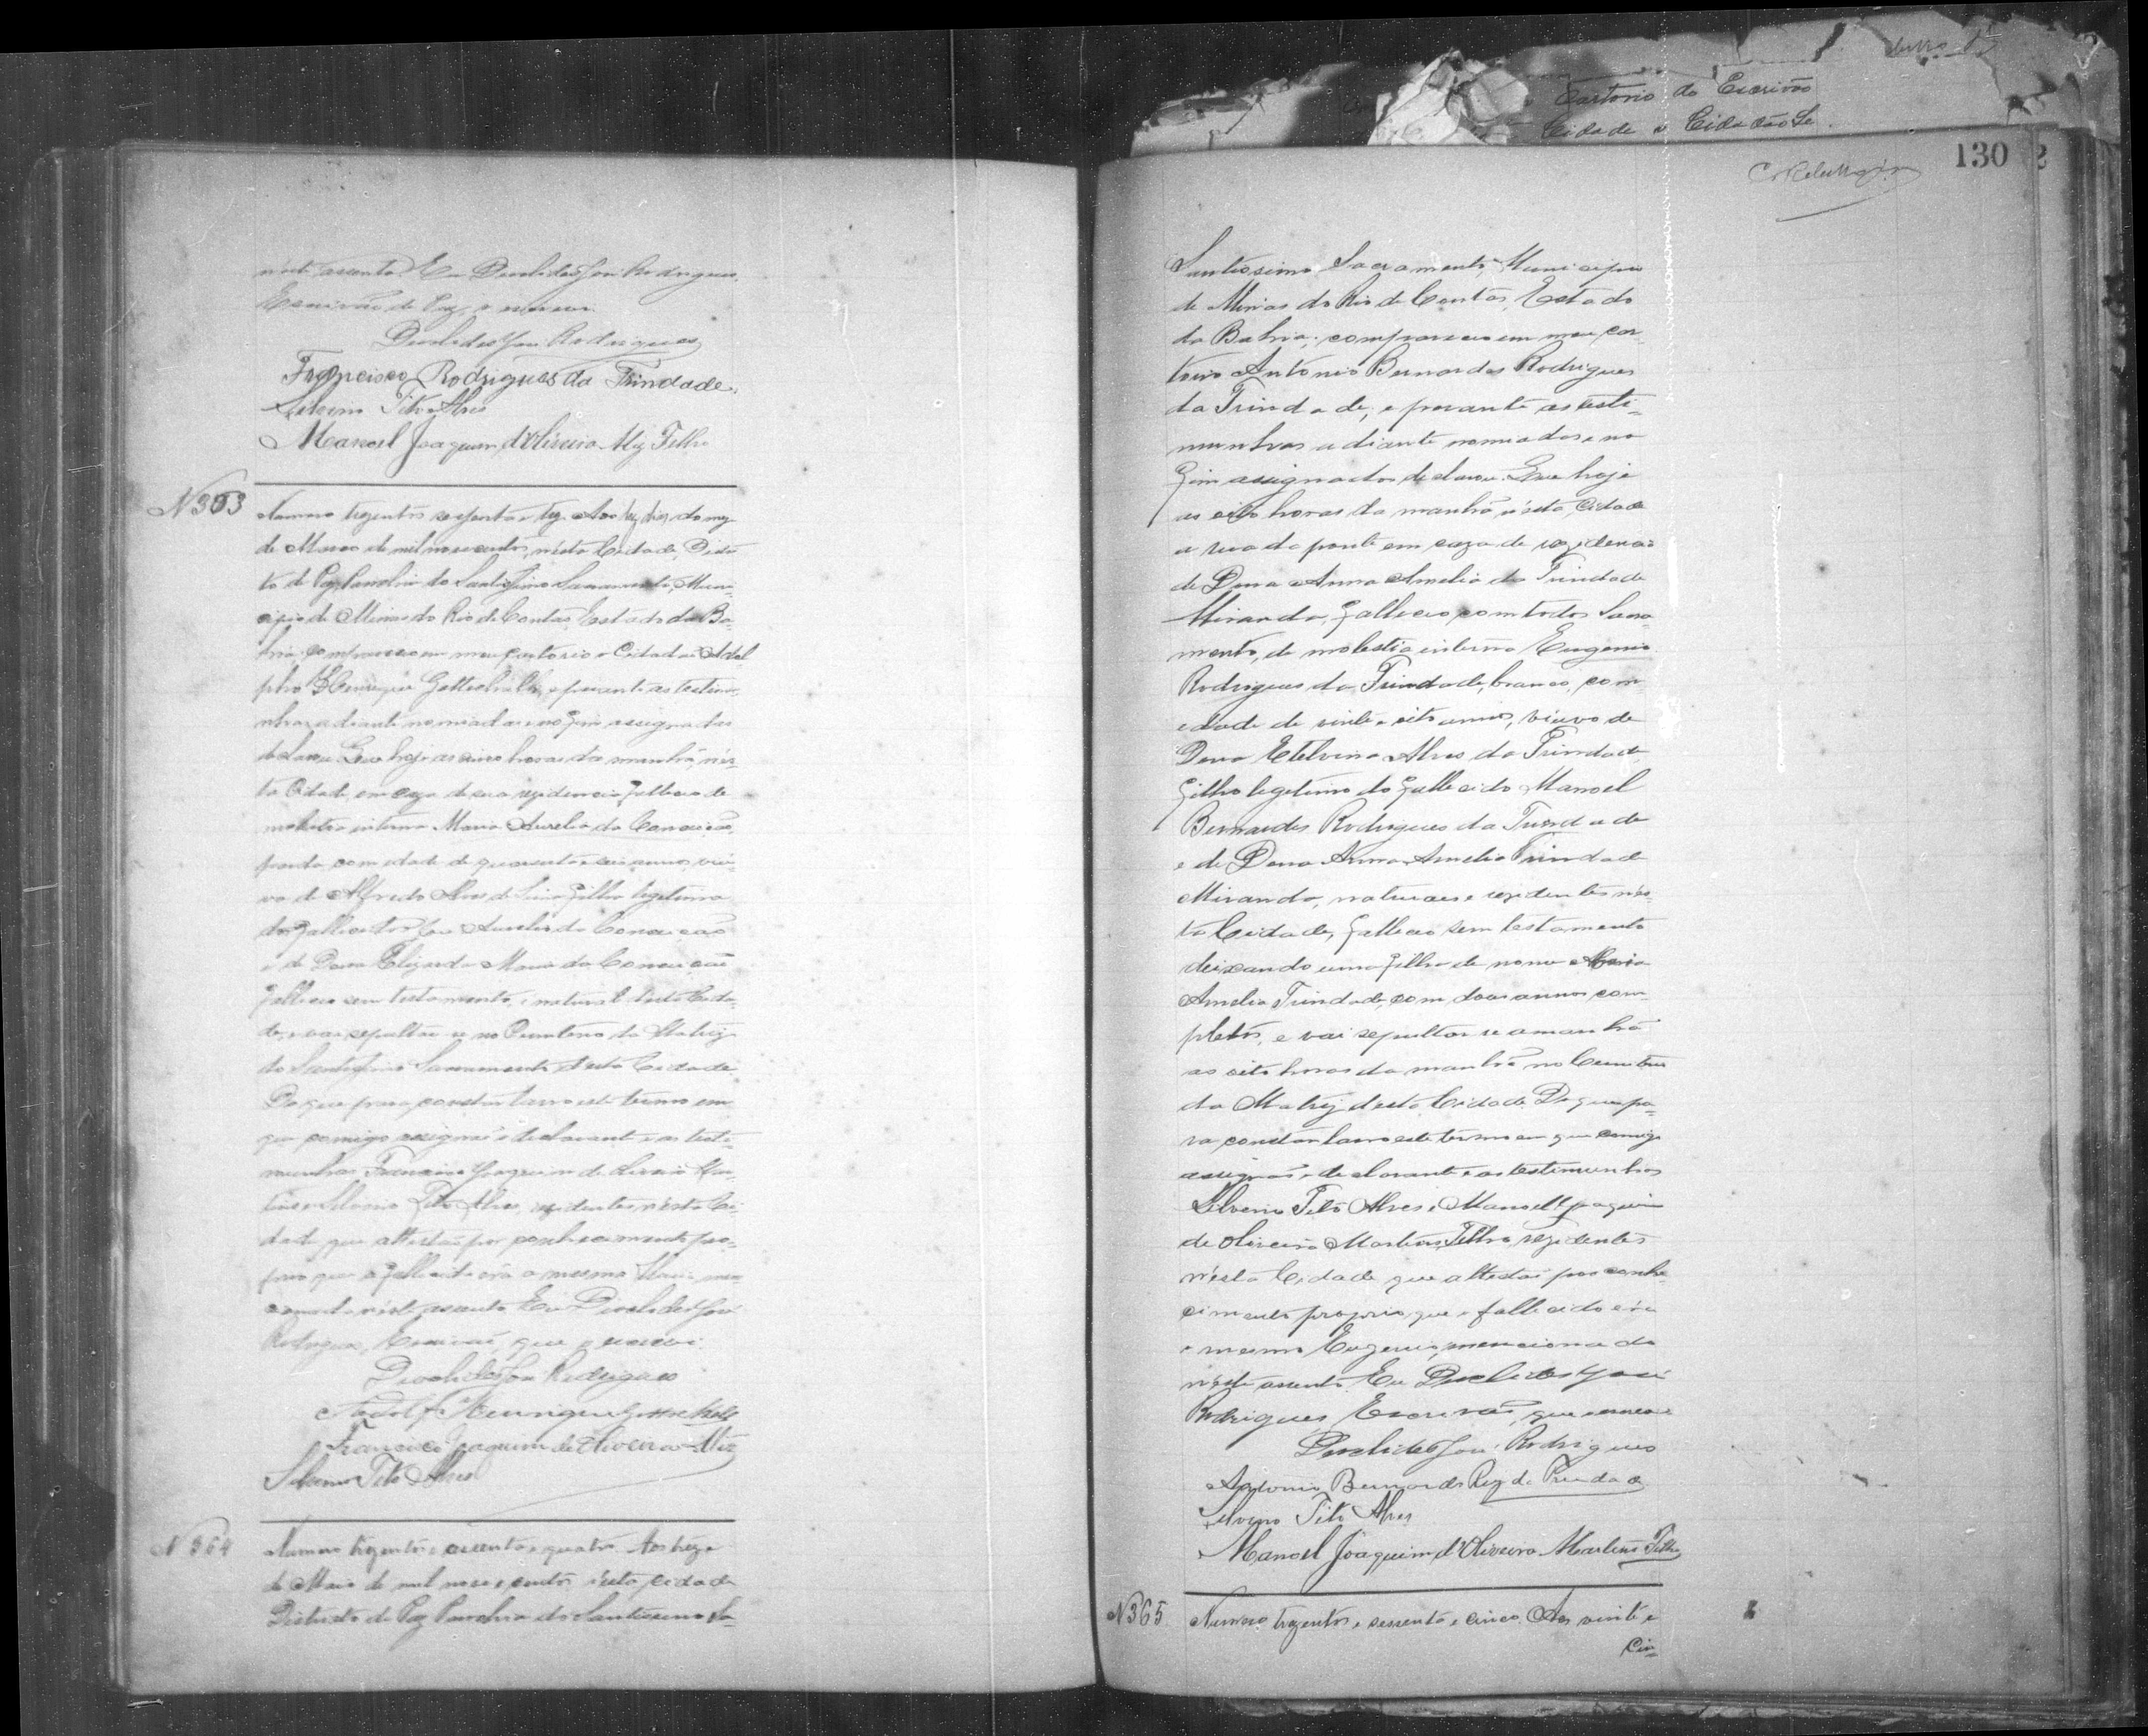 Cartorio do Escrivão
Cidade o Cidadão
130
neste assento. Eu Deoclides José Rodrigues,
Escrivão de Paz, o escrevi.
Deoclides José Rodrigues
Francisco Rodrigues da Trindade.
Silverio Tito Alves
Manoel Joaquim d'Oliveira Miz Filho
N 363
Numero trezentos sessenta e trez. Aos dias do mez
de Março de mil novecentos, nésta Cidade, Distri-
to de Paz, Parochia do Santissimo Sacramento, Muni-
cipio de Minas do Rio de Contas, Estado da Ba-
hia, compareceo em meu cartorio o Cidadão Adol-
pho Henrique Gottschalk, e perante as testimu-
nhas adiante nomiadas e no fim assignadas
declarou: Que hoje as cinco horas da manhã, nés-
ta Cidade, em caza de sua rezidencia falleceo de
molestia interna Maria Aurelia da Conceicão,
parda, com idade de quarenta e seis annos, viu-
va de Alfredo Alves de Lima, filha legitima
dos fallecidos José Aurelio da Conceicão
e de Dona Maria da Conceicão
falleceo sem testamento, é natural desta Cida-
de, e vai sepultar-se no Cemiterio da Matriz
do Santissimo Sacramento desta Cidade
Do que para constar lavro este termo em
que comigo assignão o declarante e as teste-
munhas Francisco Joaquim de Oliveira Mar-
tins e Silverio Tito Alves, rezidentes nésta Ci-
dade, que attestão por conhecimento pro-
prio que a fallecida éra a mesma Maria men-
cionada néste assento. Eu Deoclides José
Rodrigues, Escrivão, que o escrevi.
Deoclides José Rodrigues
Adolf Henrique Gottschalk
Francisco Joaquim de Oliveira Miz
Silverio Tito Alves
N 364
Numero trezentos e sessenta e quatro. Aos treze
de Maio de mil novecentos, nésta cidade
Districto de Paz, Parochia do Santissimo Sa-
Santissimo Sacramento, Municipio
de Minas do Rio de Contas, Estado
da Bahia; compareceo em meu car-
torio Antonio Bernardes Rodrigues
da Trindade, e perante as teste-
munhas adiante nomiadas e no
fim assignados declarou: Que hoje
as oito horas da manhã nésta Cidade
a rua da ponte em caza de rezidencia
de Dona Anna Amelia da Trindade
Miranda, falleceo, com todos Sacra-
mento, de molestia interna Eugenio
Rodrigues da Trindade, branco, com
edade de vinte e oito annos, viuvo de
Dona Etelvina Alves da Trindade,
filho legitimo do fallecido Manoel
Bernardes Rodrigues da Trindade
e de Dona Anna Amelia Trindade
Miranda, naturaes e rezidentes nés-
ta Cidade, falleceo sem testamento
deixando uma filha de nome Maria
Amelia Trindade, com dous annos com-
pletos, e vai sepultar-se amanhã
as oito horas da manhã no Cemiterio
da Matriz desta Cidade. Do que pa-
ra constar lavro este termo em que comigo
assignão o declarante e as testimunhas
Silverio Tito Alves e Manoel Joaquim
de Oliveira Martins Filho, rezidentes
nésta Cidade, que attestão por conhe-
cimento proprio, que o fallecido éra
o mesmo Eugenio, mencionado
néste assento. Eu Deoclides José
Rodrigues, Escrivão, que o escrevi
Deoclides José Rodrigues
Antonio Bernardes Roz da Trindade
Silverio Tito Alves
Manoel Joaquim d'Oliveira Martins Filho
N 365
Numero trezentos e sessenta e cinco. Aos vinte e
Cin-